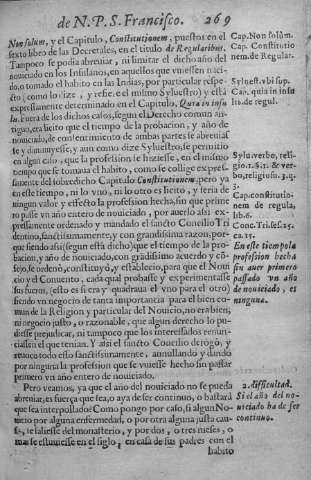 de N. P. S. Francisco. 269
Non solum, y el Capitulo, Constitutionem, puestos en el
sexto libro de las Decretales, en el titulo de Regularibus.
Tampoco se podia abreuiar, ni limitar el dicho año del
nouiciado en los Insulanos, en aquellos que viniessen naci-
do, o tomado el habito en las Indias, por particular respe-
cto; como lo dize, y refiere el mismo Syluestro) y está
expressamente determinado en el Capitulo, Quia in insu
la. Fuera de los dichos casos, segun el Derecho comun an-
tiguo, era licito que el tiempo de la probacion, y año de
nouiciado, de contentimiento de ambas partes se abreuiasse
se y diminuyesse, y aun como dize Syluestro, se permitio
en algun caso, que la profession se hiziesse, en el mismo
tiempo que se tomaua el habito, como se colige expres-
samente del sobredicho Capitulo Constitutionem, pero ya
en este tiempo, ni lo vno, ni lo otro es licito, y seria de
ningun valor y effecto la profession hecha, sin que prime
ro passe vn año entero de nouiciado, por auerlo assi ex-
pressamente ordenado y mandado el sancto Concilio Tri
dentino, sanctissimamente, y con grandissima razon, por-
que siendo assi (segun está dicho) que el tiempo de la pro-
bacion, y año de nouiciado, con gradissimo acuerdo y cõ-
sejo, se ordenò, constituyò, y establecio, para que el Noui
cio y el Conuento, cada qual prouasse y experimentasse
sus fueros, (esto es si era y quadraua el vno para el otro)
siendo vn negocio de tanta importancia para el bien co-
mun de la Religion y particular del Nouicio, no era bien,
ni negocio justo, o razonable, que algun derecho lo pu-
diesse prejudicar, ni tampoco que los interessados renun-
ciassen el que tenian. Y assi el sancto Concilio derogò, y
reuocò todo esso sanctissimamente, annullando y dando
por ninguna la profession que se vuiesse hecho sin passar
primero vn año entero de nouiciado.
Pero veamos, ya que el año del nouiciado no se pueda
abreuiar, es fuerça que sea, o aya de ser continuo, o bastarà
que sea interpollado? Como pongo por caso, si algun No-
uicio por alguna enfermedad, o por otra alguna justa cau-
sa, se saliesse del monasterio, y por dos, o tres meses, o
mas se estuuiesse en el siglo, en casa de sus padres con el
habito
Cap. Non solùm.
Cap. Constitutio
nem. de Regular.
Syluest. vbi sup.
Cap. quia in insu
la. de regul.
Sylu. verbo, reli-
gio. 1. §. 1. & ver-
bo, religiosus. 3. q.
3.
Cap. constitutio-
nem de regula,
lib. 6.
Conc. Tri. ses. 25.
ca. 15.
En este tiempo la
profession hecha
sin auer primero
passado vn año
de nouiciado, es
ninguna.
2. difficultad.
Si el año del no-
uiciado ha de ser
continuo.